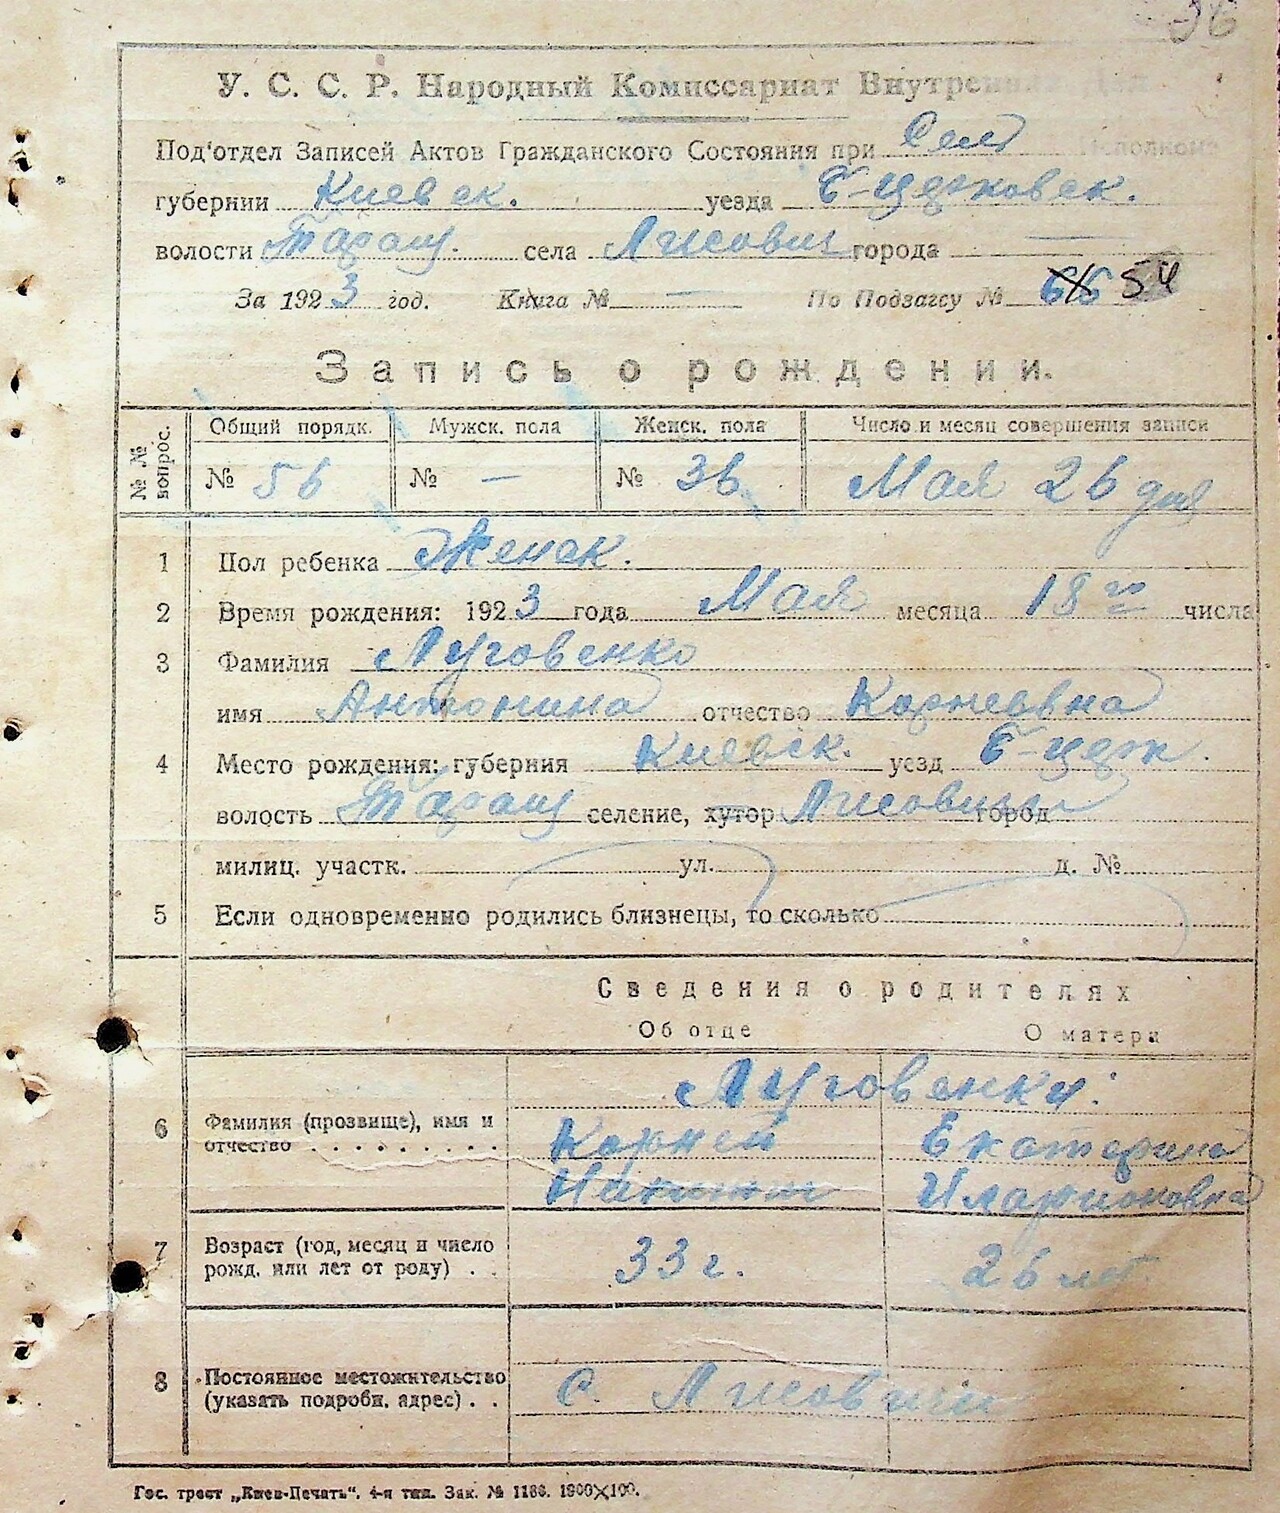 36
У. С. С. Р. Народный Комиссариат Внутренних Дел
Под'отдел Записей Актов Гражданского Состояния при Сел Исполкоме
губернии Киевск. уезда Б-Церковск.
волости Таращ. села Лисович города —
За 1923 год. Книга № — По Подзагсу № 66 54
Запись о рождении.
№ № вопрос.
Общий порядк. Мужск. пола Женск. пола Число и месяц совершения записи
№ 56 № — № 36 Мая 26 дня
1 Пол ребенка Женск.
2 Время рождения: 1923 года Мая месяца 18го числа
3 Фамилия Луговенко
имя Антонина отчество Корнеевна
4 Место рождения: губерния Киевск. уезд Б-Церк.
волость Таращ селение, хутор Лисовичи город
милиц. участк. ул. д. №
5 Если одновременно родились близнецы, то сколько
Сведения о родителях
Об отце О матери
Луговенки.
6 Фамилия (прозвище), имя и
отчество . . . . . . . . .
Корней Екатерина
Иларионовна
7 Возраст (год, месяц и число
рожд. или лет от роду) . .
33 г. 26 лет.
8 Постоянное местожительство
(указать подробн. адрес) . .
С. Лисовичи
Гос. трест „Киев-Печать". 4-я тип. Зак. № 1186. 1900×100.